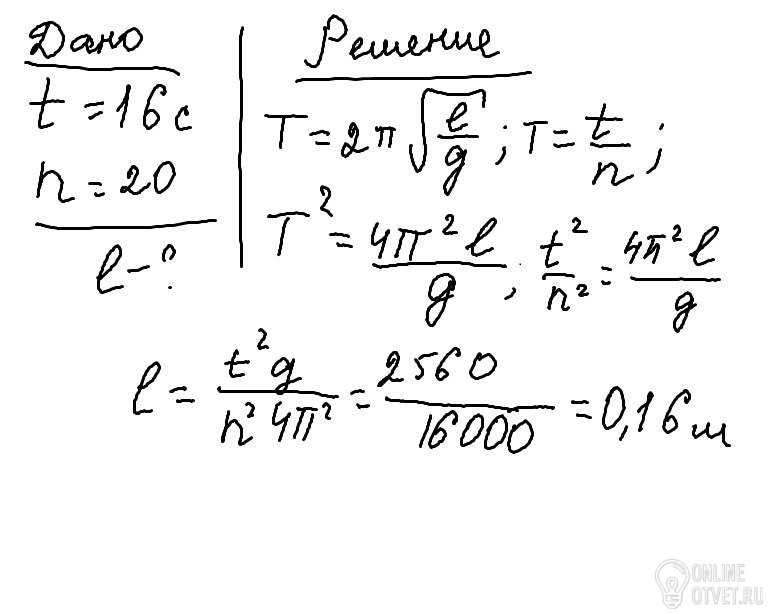 Дано
t = 16 с
n = 20
l - ?
Решение
T = 2π√(l/g) ; T = t/n ;
T² = 4π² l/g ; t²/n² = 4π² l/g
l = t² g/n² 4π² = 2560/16000 = 0,16 м
ONLINE
OTVET.RU